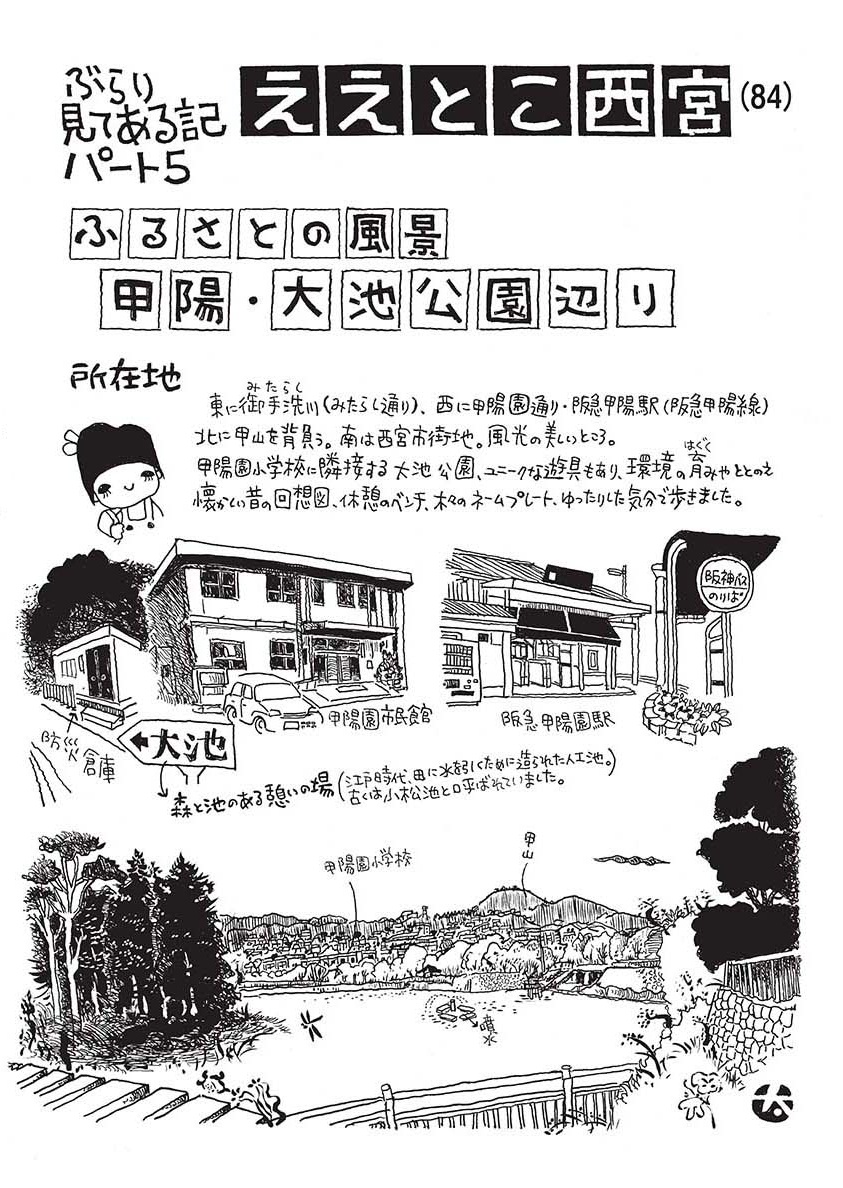 ぶらり
見てある記
パート5
ええとこ西宮(84)
ふるさとの風景
甲陽・大池公園辺り
所在地
みたらし
東に御手洗川(みたらし通り)、西に甲陽園通り・阪急甲陽駅(阪急甲陽線)
北に甲山を背負う。南は西宮市街地。風光の美しいところ。
はぐく
甲陽園小学校に隣接する大池公園、ユニークな遊具もあり、環境の育みやととのえ
懐かしい昔の回想図、休憩のベンチ、木々のネームプレート、ゆったりした気分で歩きました。
阪神バス
のりば
甲陽園市民館
阪急甲陽園駅
防災倉庫
大池
森と池のある憩いの場
(江戸時代、田に水を引くために造られた人工池。
古くは小松池と呼ばれていました。)
甲陽園小学校
甲山
噴水